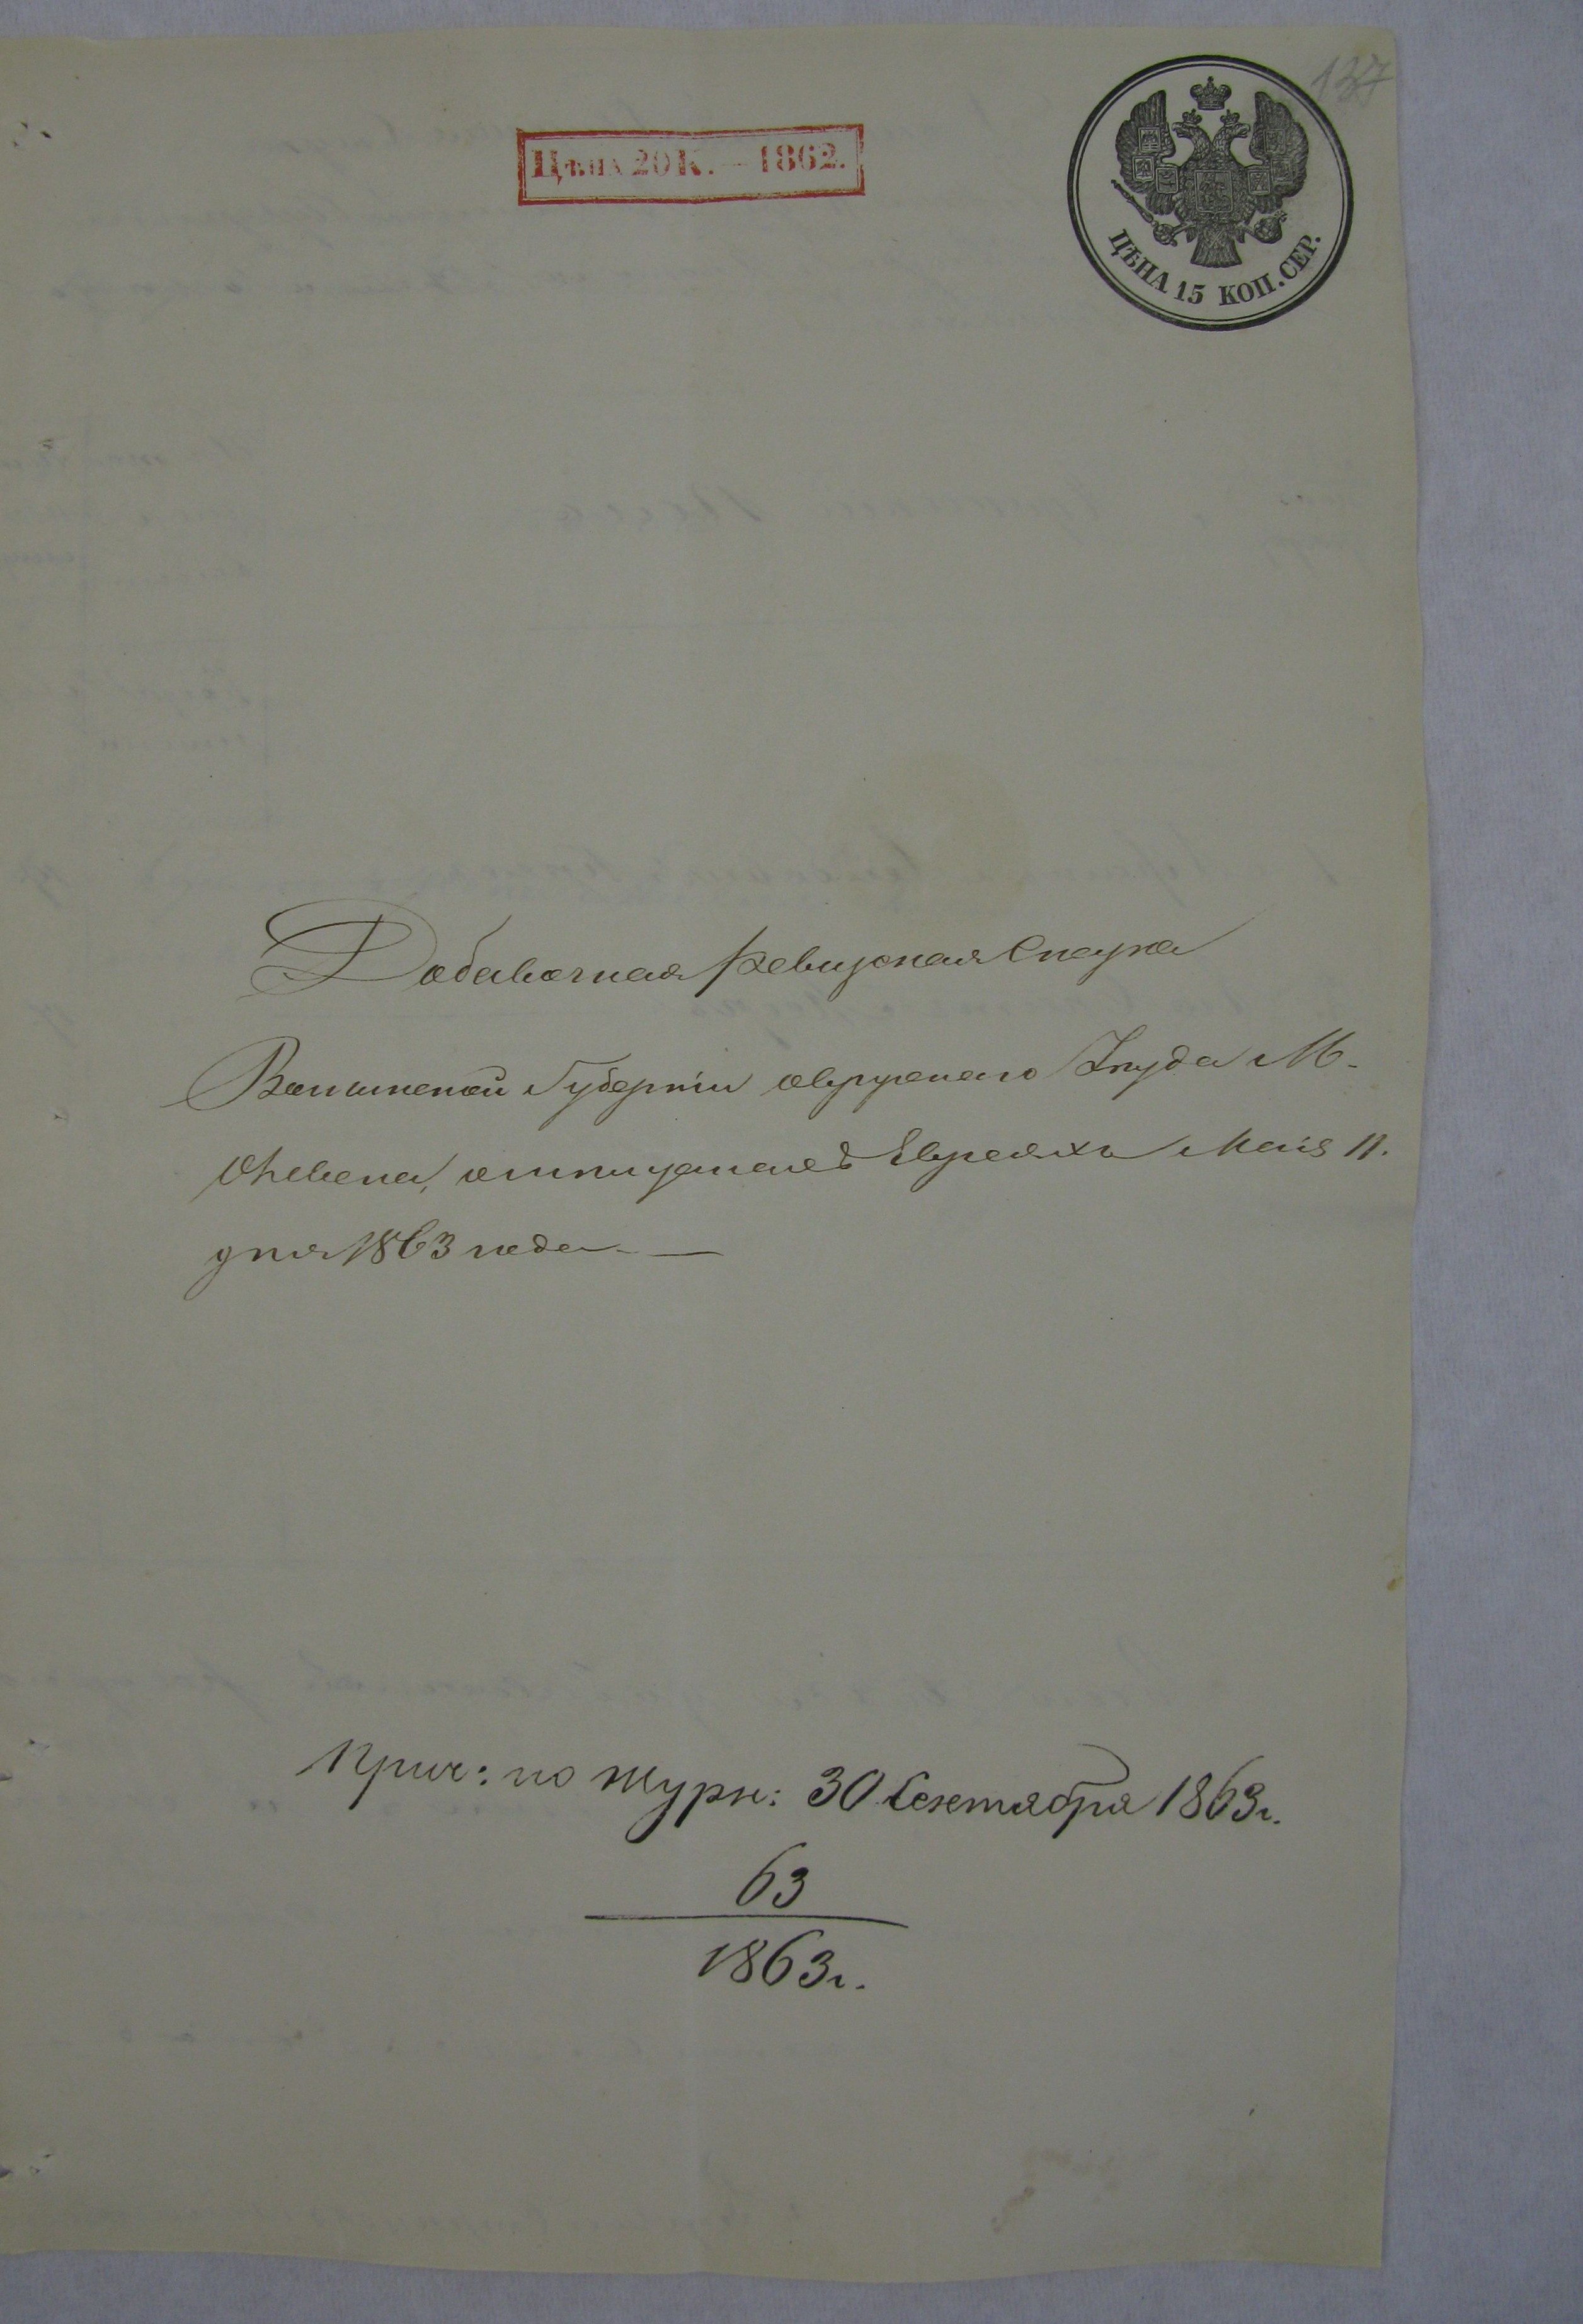 137
Цѣна 20 К. — 1862.
ЦѢНА 15 КОП. СЕР.
Добавочная Ревизская Сказка
Волынской Губерніи Овручскаго Уѣзда М.
Олевска, о Евреяхъ Мая 11.
дня 1863 года —
Прич: по журн: 30 Сентября 1863 г.
63
1863 г.